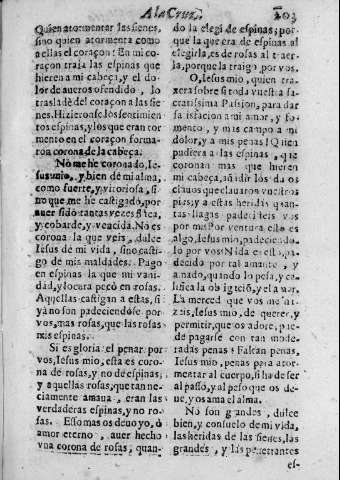 A la Cruz. 203
Quien atormentar las sienes,
sino quien atormenta como
a ellas el coraçon! En mi co-
raçon traia las espinas que
hieren a mi cabeça, y el do-
lor de averos ofendido, lo
trasladè del coraçon a las sie
nes. Hizieronse los sentimien
tos espinas, y los que eran tor
mento en el coraçon forma-
ron corona de la cabeça.
No me he coronado, Ie-
sus mio, y bien de mi alma,
como fuerte, y vitoriosa, si
no que me he castigado, por
aver sido tantas vezes flaca,
y cobarde, y vencida. No es
corona la que veis, dulce
Iesus de mi vida, sino casti-
go de mis maldades. Pago
en espinas la que mi vani-
dad, y locura pecò en rosas.
Aquellas castigan a estas, si
ya no son padeciendose por
vos, mas rosas, que las rosas
mis espinas.
Si es gloria el penar por
vos, Iesus mio, esta es coro
na de rosas, y no de espinas,
y aquellas rosas, que tan ne-
ciamente amava, eran las
verdaderas espinas, y no ro-
sas. Esso mas os devo yo, ò
amor eterno, aver hecho
una corona de rosas, quan-
do la elegi de espinas; por-
que la que era de espinas al
elegirla, es de rosas al traer-
la, porque la traigo por vos.
O, Iesus mio, quien tra-
xera sobre si toda vuestra sa-
cratissima Passion, para dar
satisfacion a mi amor, y fo-
mento, y mis campo a mi
dolor, y a mis penas! Quien
pudiera a las espinas, que
coronan mas que hieren
mi cabeça, añidir los dos
clavos que clavaron vuestros
pies; y a estas heridas quan-
tas llagas padecisteis vos
por mi! Por ventura ello es
algo, Iesus mio, padeciendo
lo por vos? Nada es lo pa-
decido por tal amante, y
amado, quando lo pesa, y ca-
lifica la obligaciò, y el a nor.
La merced que vos me
zeis, Iesus mio, de querer, y
permitir, que os adore, pue-
de pagarse con tan mode-
radas penas? Faltan penas,
Iesus mio, penas para ator-
mentar al cuerpo, si ha de ser
al passo, y al peso que os de-
ve, y os ama el alma.
No son grandes, dulce
bien, y consuelo de mi vida,
las heridas de las sienes, las
grandes, y las penetrantes
es-